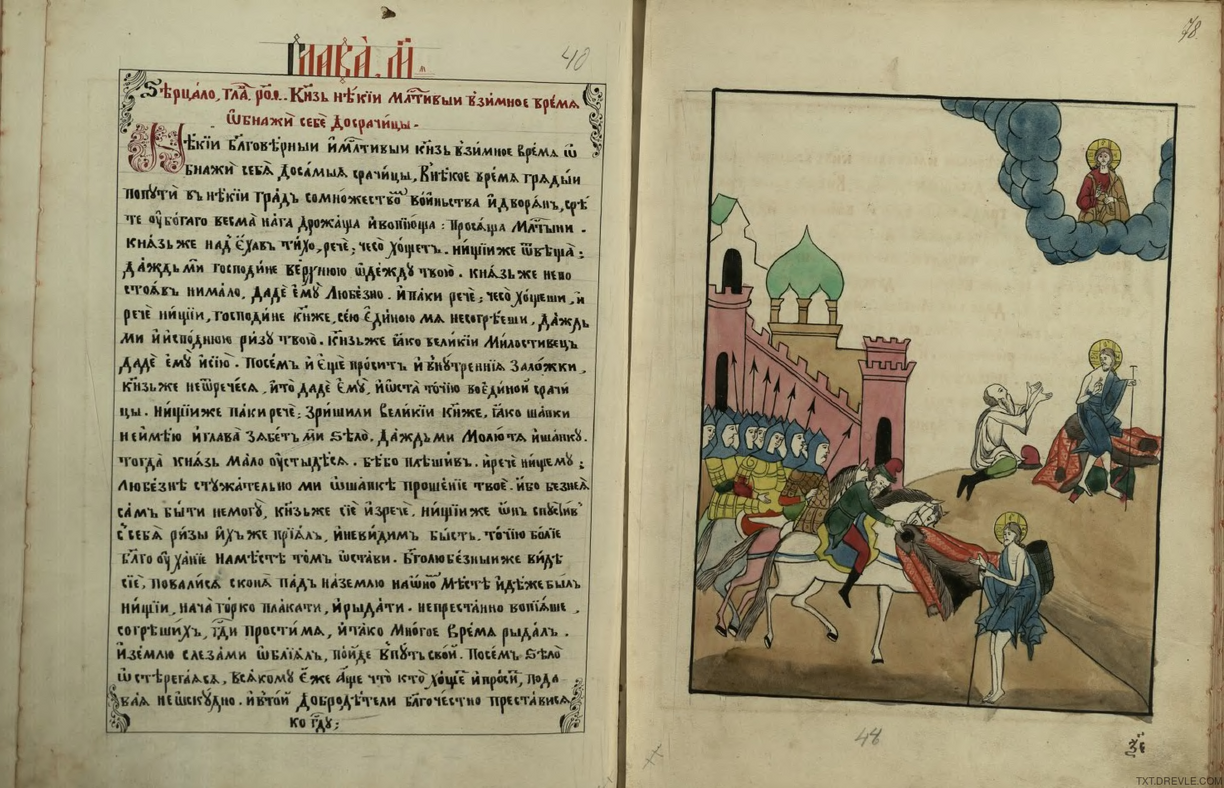 Глава. м҃і
40
Ѕерцало, гла҃. ро҃ѳ.. Кн҃зь нѣ́кїи мл҃тивыи в̾зи́мное вре́мѧ
ѡ҆бнажѝ себѐ досрачи́цы.
Нѣ́кїи бл҃говѣ́рныи и҆ мл҃тивыи кн҃зь в̾зи́мное вре́мѧ ѡ҆
бнажѝ себѧ̀ досамыѧ срачи́цы, внѣ́кое вре́мѧ грѧды́и
попꙋтѝ въ нѣ́кїи гра́дъ сомно́жествоⷨ во́иньства и҆ дворѧ́нъ, срѣ́
те ᲂу҆бо́гаго весма̀ на́га дрожа́ща и҆вопїю́ща : просѧ́ща мл҃тыни .
кнѧ́зь же над̾ е҆́хавъ ти́хо, речѐ; чесо̀ хо́щетъ . ни́щїиже ѿвѣща̀ ;
да́ждь мѝ господи́не ве́рхнюю ѻ҆де́ждꙋ твою̀ . кнѧ́зь же непо
стоѧ́въ нима́ло, дадѐ е҆мꙋ̀ любе́зно . и҆па́ки речѐ ; чесо̀ хо́щеши , и҆
речѐ ни́щїи, господи́не кн҃же, се́ю е҆ди́ною мѧ несогрѣ́еши , да́ждь
ми и҆и҆спо́днюю ри́зꙋ твою̀ . кн҃зь же ꙗ҆́ко вели́кїи ми́лостивецъ
дадѐ е҆мꙋ̀ и҆сїю̀ . Посе́мъ и҆ е҆щѐ про́ситъ и҆ внꙋ́треннїѧ зало́жки ,
кн҃зь же неѿрече́сѧ , и҆то̀ дадѐ е҆мꙋ̀ , и҆ѡ҆ста̀ то́чїю вое҆ди́нои срачи
цы . ни́щїиже па́ки речѐ ; зри́шили вели́кїи кн҃же, ꙗ҆́ко ша́пки
неимѣ́ю и҆глава̀ зѧ́бетъ ми ѕѣло̀ . да́ждь ми молю́тѧ и҆ша́пкꙋ .
тогда̀ кнѧ́зь ма́ло ᲂу҆стыдѣ́сѧ . бѣ́бо плѣши́въ . и҆речѐ ни́щемꙋ ;
любе́знѣ стꙋжа́тельно ми ѡ҆ша́пкѣ проше́нїе твоѐ . и҆́бо безнеѧ̀
са́мъ бы́ти немогꙋ̀ , кн҃зь же сїѐ и҆зречѐ , ни́щїи же ѻ҆́нъ спꙋсти́въ
с̾себѧ̀ ри́зы и҆́хъже прїѧ́лъ , и҆неви́димъ бы́сть . то́чїю бо́лїе
бл҃го ᲂу҆ха́нїе нам̾ѣ́стѣ то́мъ ѡ҆ста́ви . Бг҃олюбе́зныиже ви́дѣ
сїѐ , повали́сѧ сконѧ̀ па́дъ назе́млю наѻ҆́ноⷨ мѣ́стѣ и҆дѣ́же былъ
ни́щїи , нача̀ го́рко пла́кати , и҆рыда́ти . непреста́нно вопїѧ́ше ,
согрѣши́хъ , гд҃и прости́ мѧ , и҆та́ко мно́гое вре́мѧ рыда́лъ .
и҆зе́млю слеза́ми ѡ҆блїѧ́лъ , по́йде в̾пꙋ́ть свои҆̀ . Посе́мъ ѕѣло̀
ѡ҆стерега́ѧсѧ , всѧ́комꙋ є҆́же а҆́ще что̀ кто̀ хо́щеⷮ и҆про́сиⷮ , пода
ва́ѧ неѡ҆скꙋ́дно . и҆вто́й добродѣ́тели бл҃гоче́стно преста́висѧ
ко гд҃ꙋ ;
48
48
TXT.DREVLE.COM